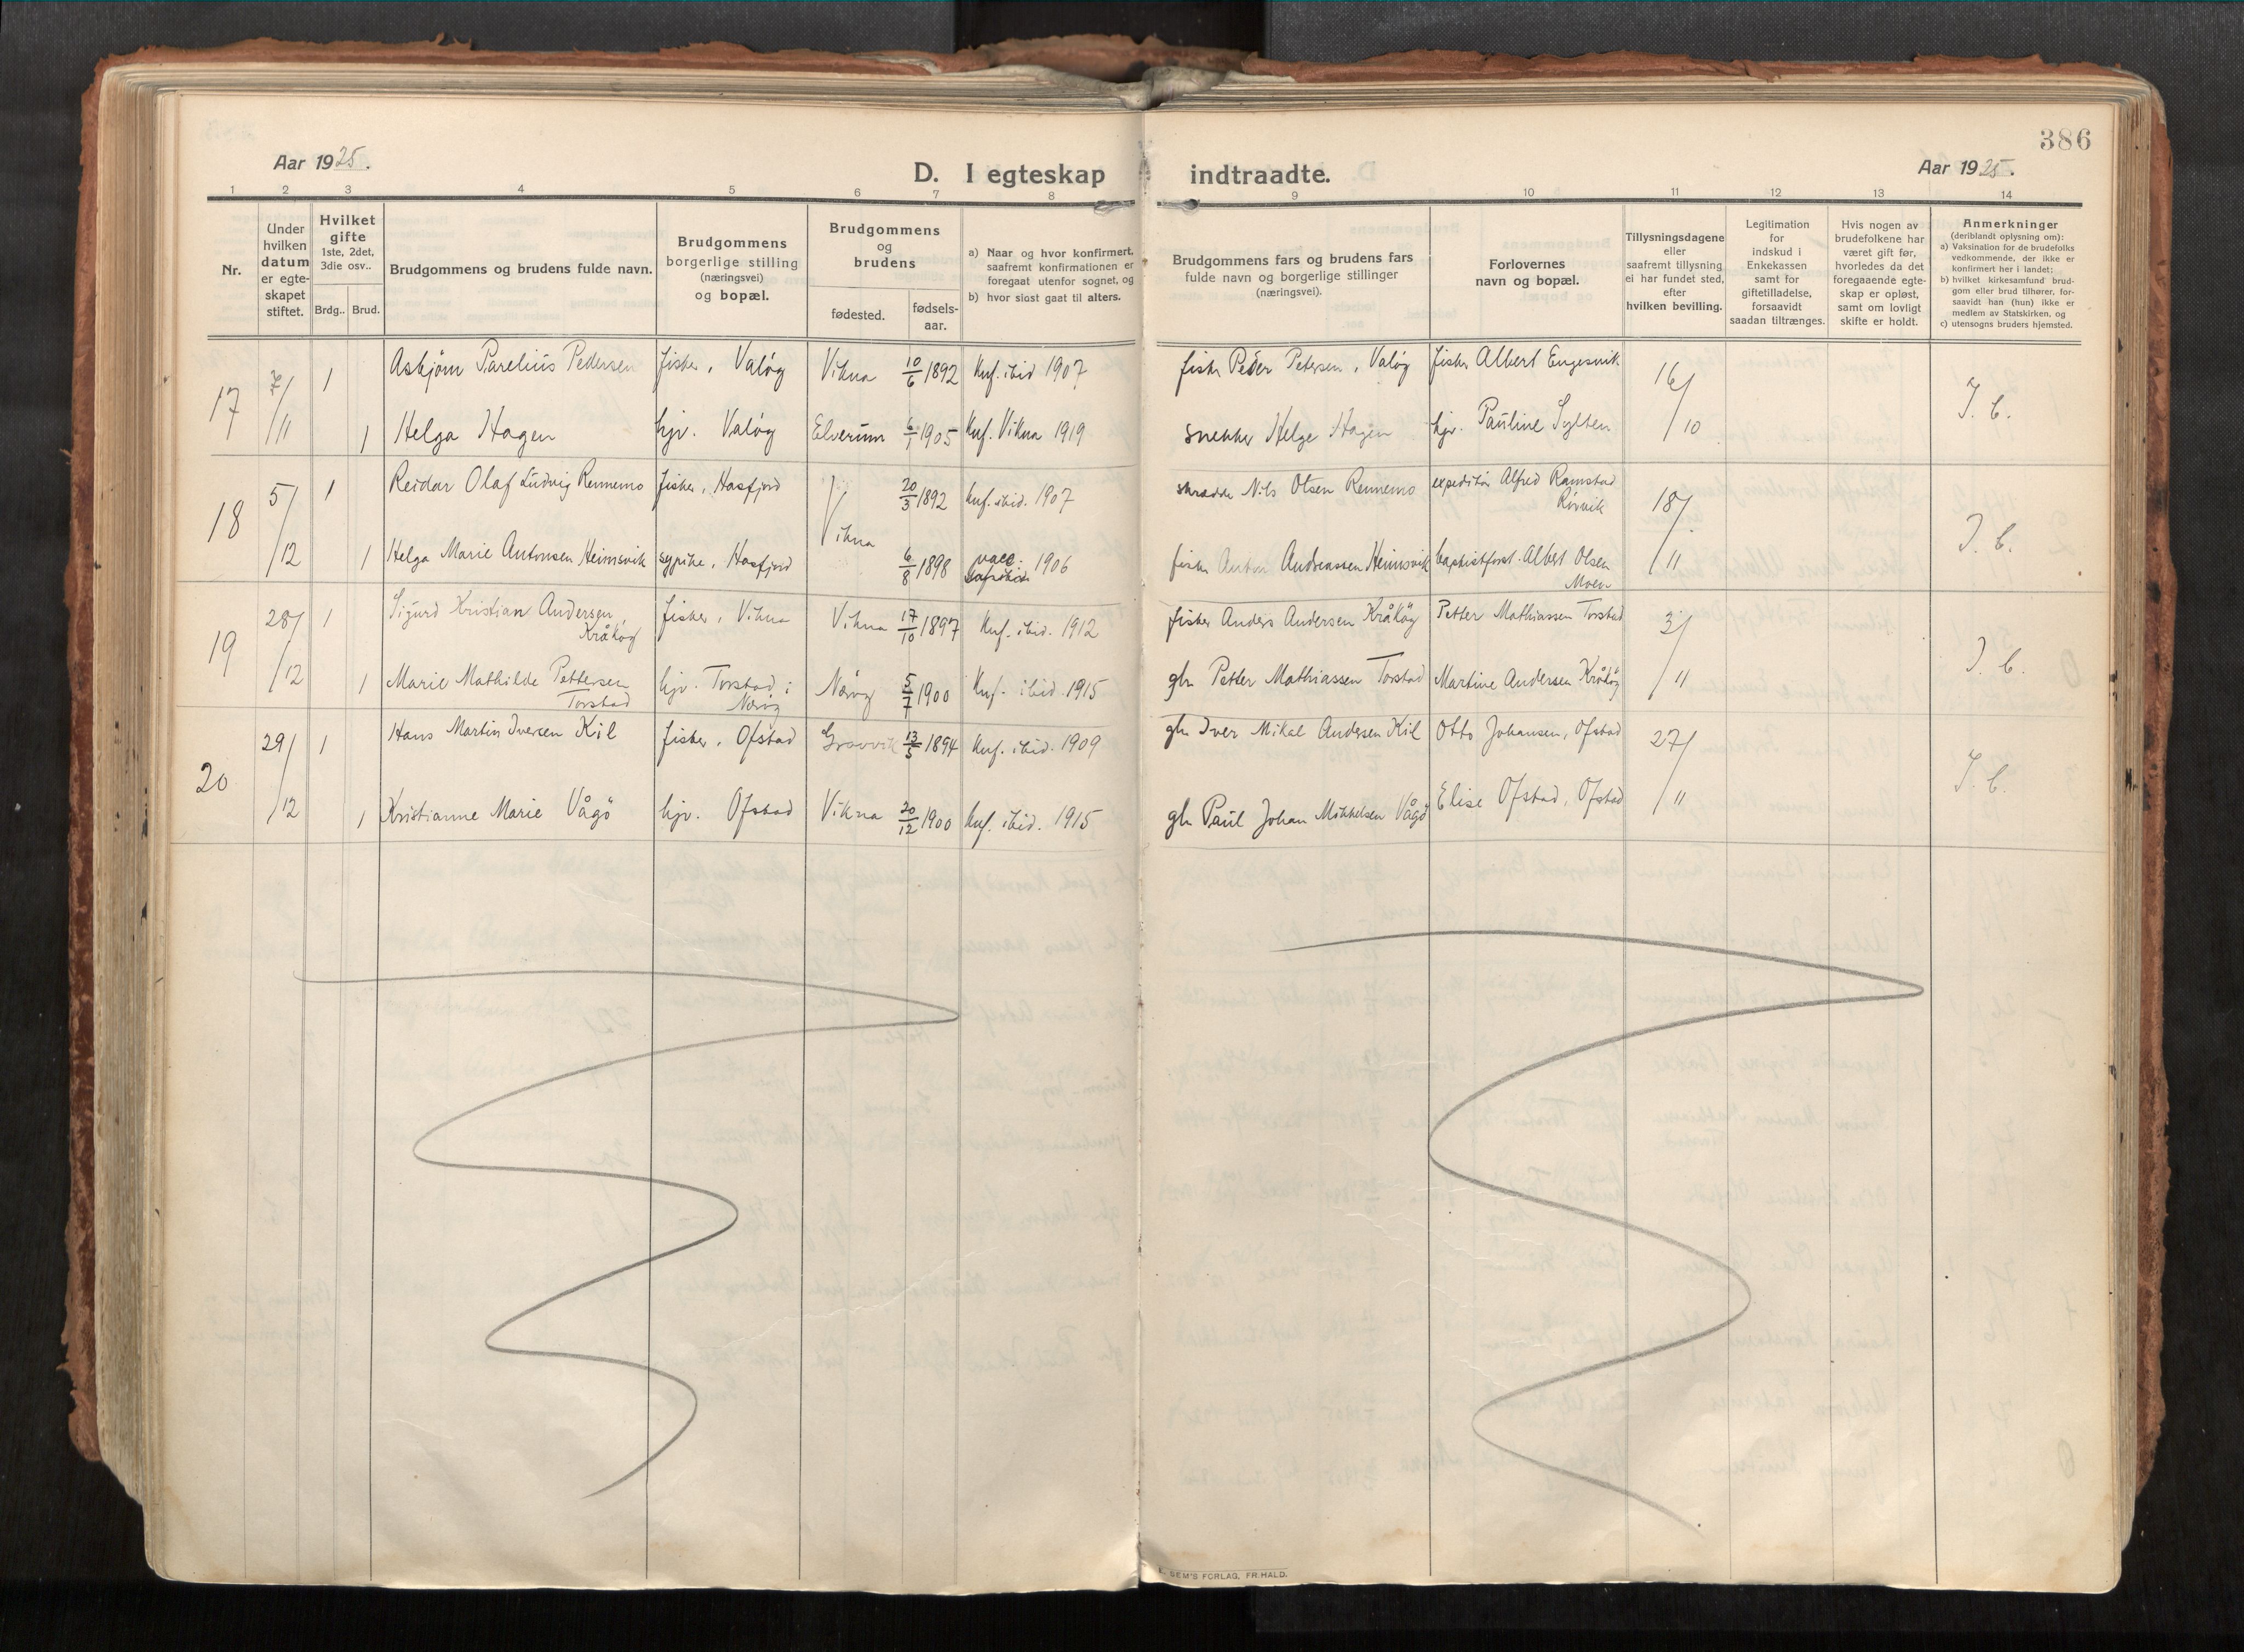 386
Aar 1925.
D. I egteskap indtraadte.
Aar 1925.
1 2 3 4 5 6 7 8 9 10 11 12 13 14
Nr.
Under hvilken datum er egteskapet stiftet.
Hvilket gifte 1ste, 2det, 3die osv..
Brdg.. Brud.
Brudgommens og brudens fulde navn.
Brudgommens borgerlige stilling (næringsvei) og bopæl.
Brudgommens og brudens
fødested.
fødselsaar.
a) Naar og hvor konfirmert, saafremt konfirmationen er foregaat utenfor sognet, og
b) hvor sidst gaat til alters.
Brudgommens fars og brudens fars fulde navn og borgerlige stillinger (næringsvei).
Forlovernes navn og bopæl.
Tillysningsdagene eller saafremt tillysning ei har fundet sted, efter hvilken bevilling.
Legitimation for indskud i Enkekassen samt for giftetilladelse, forsaavidt saadan tiltrænges.
Hvis nogen av brudefolkene har været gift før, hvorledes da det foregaaende egteskap er opløst, samt om lovligt skifte er holdt.
Anmerkninger (deriblandt oplysning om):
a) Vaksination for de brudefolks vedkommende, der ikke er konfirmert her i landet;
b) hvilket kirkesamfund brudgom eller brud tilhører, forsaavidt han (hun) ikke er medlem av Statskirken, og
c) utensogns bruders hjemsted.
17 7/11 1 Asbjørn Parelius Pedersen fisker, Valøy Vikna 10/6 1892 Knf. ibid 1907 fisker Peder Petersen, Valøy fisker Albert Engesvik 16/10 J. b.
1 Helga Hagen hjv. Valøy Elverum 6/1 1905 Knf. Vikna 1919 snekker Helge Hagen hjv. Pauline Sylten
18 5/12 1 Reidar Olaf Ludvig Rennemo fisker, Hasfjord Vikna 20/3 1892 knf. ibid. 1907 skrædder Nils Olsen Rennemo expeditør Alfred Ramstad Rørvik 18/11 J. b.
1 Helga Marie Antonsen Heimsvik sypike, Hasfjord 6/8 1898 vacc. 1906 fisker Anton Andreassen Heimsvik baptistforst. Albert Olsen Moen
19 28/12 1 Sigurd Kristian Andersen, Kråkøy fisker, Vikna Vikna 17/10 1897 Knf. ibid. 1912 fisker Anders Andersen Kråkøy Petter Mathiassen Torstad 3/11 J. b.
1 Marie Mathilde Pettersen Torstad hjv. Torstad i Nærøy Nærøy 5/7 1900 Knf. ibid 1915 gbr Petter Mathiassen Torstad Martine Andersen Kråkøy
20 29/12 1 Hans Martin Iversen Kil fisker, Ofstad Gravvik 13/5 1894 Knf. ibid. 1909 gbr Iver Mikal Andersen Kil Otto Johansen, Ofstad 27/11 J. b.
1 Kristianne Marie Vågö hjv. Ofstad Vikna 20/12 1900 knf. ibid. 1915 gbr Paul Johan Mikkelsen Vågö Elise Ofstad, Ofstad
SEM'S FORLAG, FR.HALD.